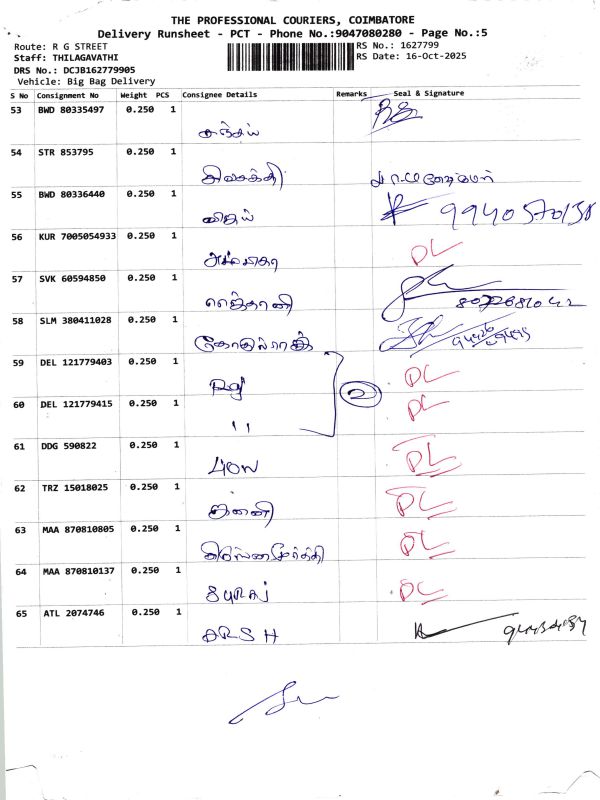 THE PROFESSIONAL COURIERS, COIMBATORE
Delivery Runsheet - PCT - Phone No.:9047080280 - Page No.:5
Route: R G STREET RS No.: 1627799
Staff: THILAGAVATHI RS Date: 16-Oct-2025
DRS No.: DCJB162779905
Vehicle: Big Bag Delivery
S No Consignment No Weight PCS Consignee Details Remarks Seal & Signature
53 BWD 80335497 0.250 1
சஞ்சய்
54 STR 853795 0.250 1
55 BWD 80336440 0.250 1
விஜய் 9940570138
56 KUR 7005054933 0.250 1 DL
57 SVK 60594850 0.250 1
58 SLM 380411028 0.250 1
59 DEL 121779403 0.250 1 DL
2
60 DEL 121779415 0.250 1 DL
"
61 DDG 590822 0.250 1 DL
62 TRZ 15018025 0.250 1 DL
63 MAA 870810805 0.250 1 DL
64 MAA 870810137 0.250 1 DL
SURAJ
65 ATL 2074746 0.250 1
ARSH